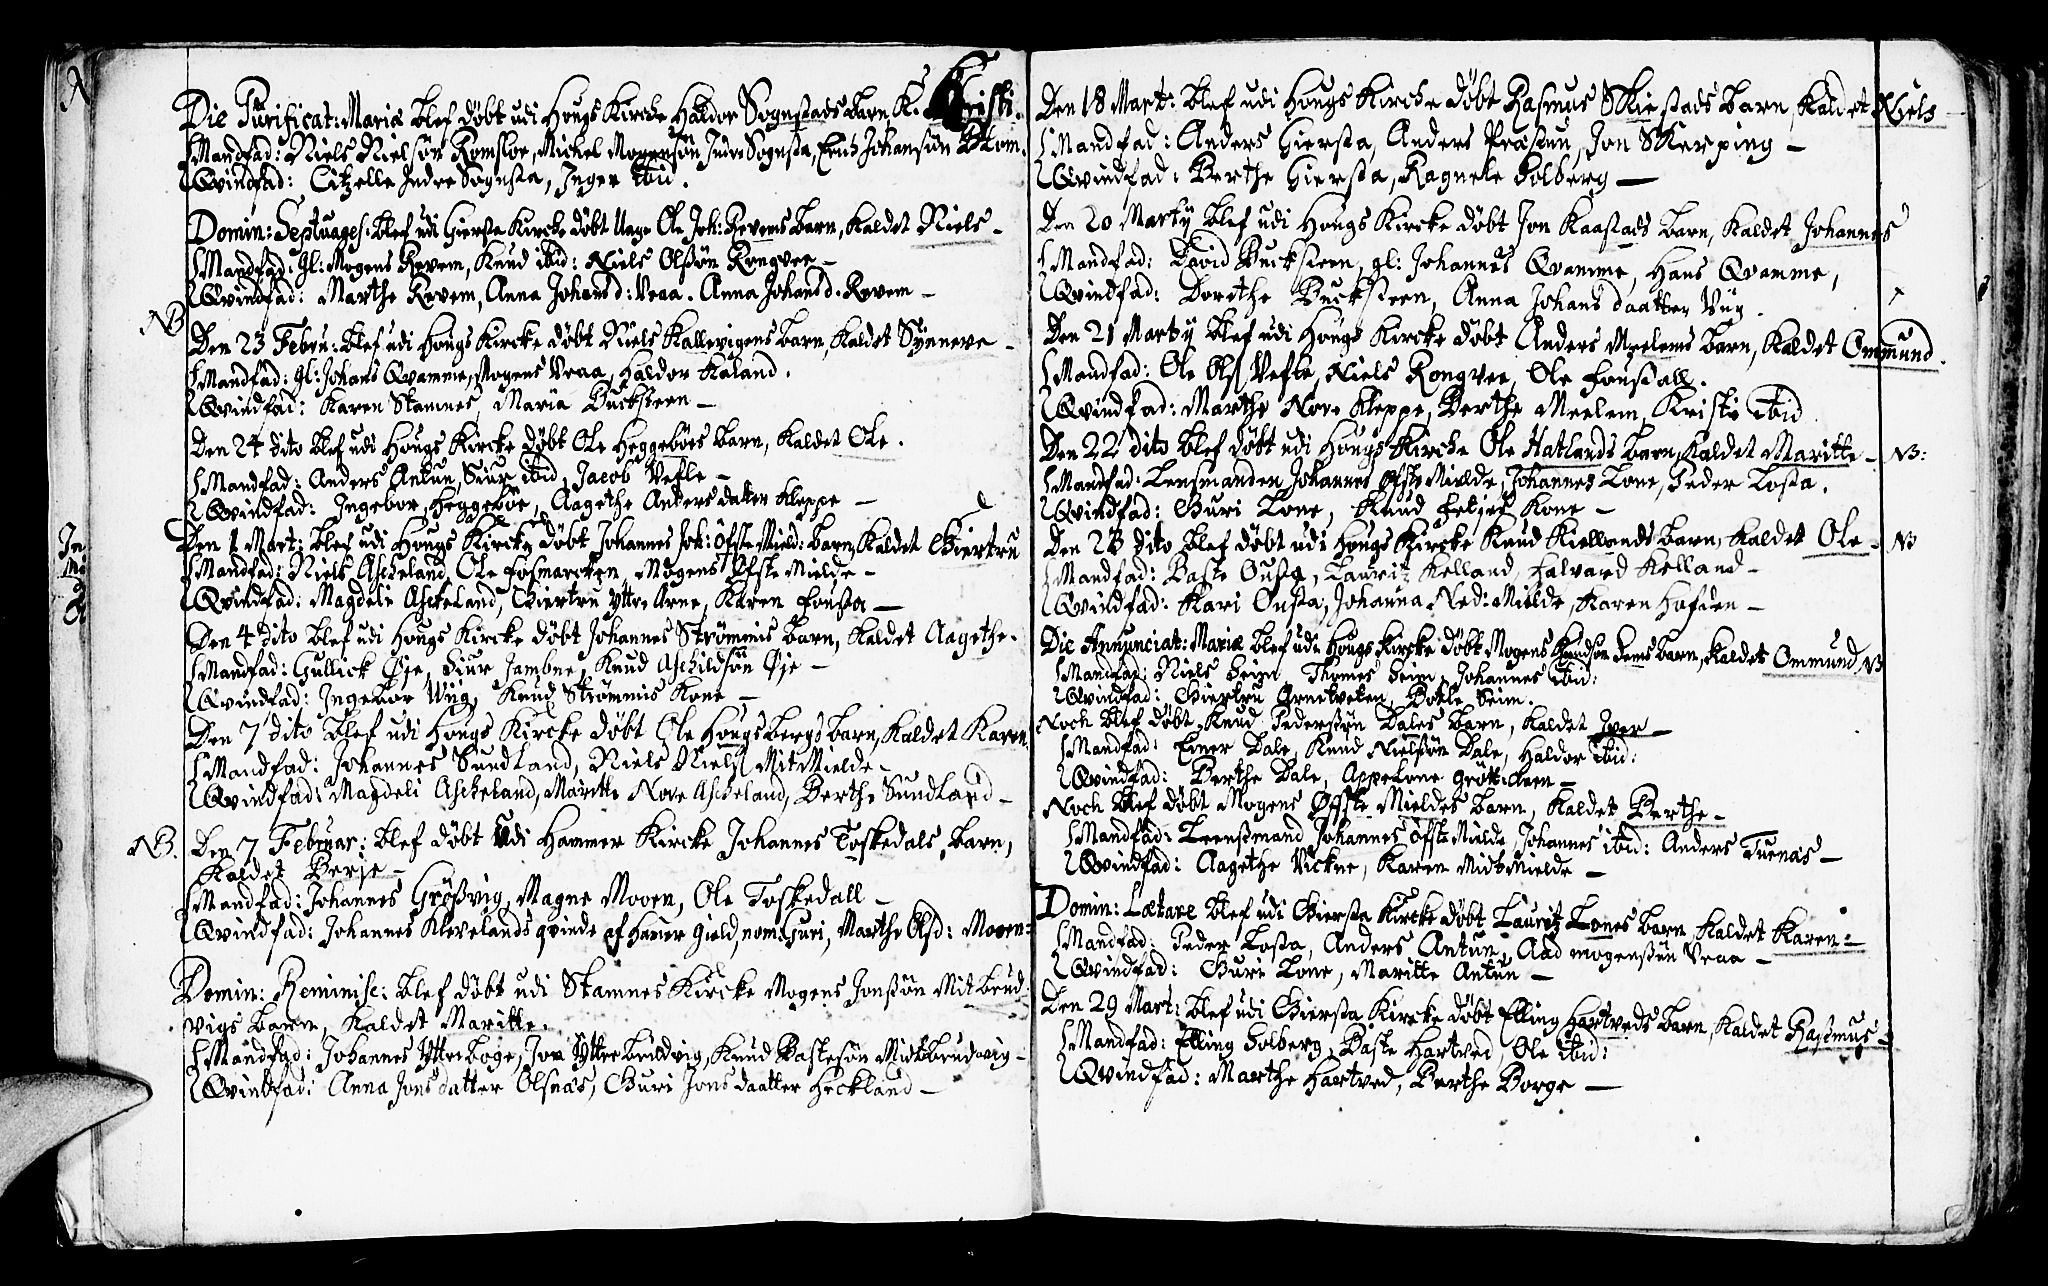 Die Purificat: Mariæ blef døbt udi Hougs Kircke Haldor Sognstads barn K. Kristi.
Mandfad: Niels Nielsøn Romsloe, Michel Mogensøn Indre Sognsta, Erich Johansøn Blom.
Qvindfad: Citzelle Indre Sognsta, Inger ibid.
Domin: Septuages: blef udi Giersta Kircke døbt Unge Ole Joh: Revems barn, Kaldet Niels –
Mandfad: gl: Mogens Revem, Knud ibid: Niels Olssøn Rongvee –
Qvindfad: Marthe Revem, Anna Johansd: Veaa. Anna Johansd. Revem –
NB
Den 23 Febru: blef udi Hougs Kircke døbt Niels Kallevigens barn, Kaldet Synneve –
Mandfad: gl: Johans Qvamme, Mogens Veaa, Haldor Kaland.
Qvindfad: Karen Stamnes, Maria Bucksteen –
Den 24 dito blef udi Hougs Kircke døbt Ole Heggebøes barn, Kaldet Ole.
Mandfad: Anders Antun, Siur ibid, Jacob Vefle –
Qvindfad: Ingebor Heggebøe, Aagethe Anders datter Kleppe –
Den 1 Mart: blef udi Hougs Kircke døbt Johannes Joh: Øfste Mield: barn, Kaldet Giertru
Mandfad: Niels Ascheland, Ole Fosmarcken, Mogens Øfste Mielde –
Qvindfad: Magdeli Ascheland, Giertru Ytre Arne, Karen Fousta –
Den 4 dito blef udi Hougs Kircke døbt Johannes Strømmis barn, Kaldet Aagethe.
Mandfad: Gullick Øje, Siur Jambne, Knud Aschildsøn Øje –
Qvindfad: Ingebor Viig, Knud Strømmis Kone –
Den 7 dito blef udi Hougs Kircke døbt Ole Hougsbergs barn, Kaldet Karen
Mandfad: Johannes Sundland, Niels Niels: Mit Mielde –
Qvindfad: Magdeli Ascheland, Maritte Nore Ascheland, Berthe Sundland –
NB.
Den 7 Februar: blef døbt udi Hammer Kircke Johannes Toskedals barn,
Kaldet Berje –
Mandfad: Johannes Grøssvig, Magne Mooen, Ole Toskedall –
Qvindfad: Johannes Klevelands qvinde af Haver Gield, nom: Guri, Marthe Olsd: Mooen –
Domin: Reminisc: blef døbt udi Stamnes Kircke Mogens Jonssøn Mit brud
vigs barn, Kaldet Maritte.
Mandfad: Johannes Yttreboge, Jon Yttre brudvig, Knud Bastesøn Midtbrudvig –
Qvindfad: Anna Jons datter Olsnas, Guri Jons daatter Heckland –
Den 18 Mart: blef udi Hougs Kircke døbt Rasmus Skiestads barn, Kaldet Niels
Mandfad: Anders Giersta, Anders Præstun, Jon Skerping –
Qvindfad: Berthe Giersta, Ragnele Solberg –
Den 20 Martij blef udi Hougs Kircke døbt Jon Kaastads barn, Kaldet Johannes
Mandfad: David Bucksteen, gl: Johannes Qvamme, Hans Qvamme,
Qvindfad: Dorethe Bucksteen, Anna Johans daatter Viig.
Den 21 Martij blef udi Hougs Kircke døbt Anders Meelems barn, Kaldet Ommund.
Mandfad: Ole Ols: Vefle, Niels Rongvee, Ole Fousdall.
Qvindfad: Marthe Nore Kleppe, Berthe Meelem, Kristi ibid
Den 22 dito blef døbt udi Hougs Kircke Ole Hatlands barn, Kaldet Maritte – NB:
Mandfad: Lensmanden Johannes Øfste Mielde, Johannes Lone, Peder Tosta.
Qvindfad: Guri Lone, Knud Fetjes Kone –
Den 23 dito blef døbt udi Hougs Kircke Knud Kiellands barn, Kaldet Ole – NB
Mandfad: Baste Ousta, Lauritz Kelland, Halvard Kelland –
Qvindfad: Kari Ousta, Johanna Ned: Mielde, Karen Hofden –
Die Annunciat: Mariæ blef udi Hougs Kircke døbt Mogens Knudsøn Seims barn, Kaldet Ommund NB
Mandfad: Niels Seim, Thomes Seim, Johannes ibid:
Qvindfad: Giertru Ørneveken, Botle Seim.
Noch blef døbt Knud Pederssøn Dales barn, Kaldet Iver –
Mandfad: Einer Dale, Knud Nielssøn Dale, Haldor ibid:
Qvindfad: Berthe Dale, Appelone Grøttveen –
Noch blef døbt Mogens Øfste Mieldes barn, Kaldet Berthe –
Mandfad: Leenssmand Johannes Øfste Mielde, Johannes ibid: Anders Tuenæs –
Qvindfad: Aagethe Vickne, Karen Midt Mielde –
Domin: Lætare blef udi Giersta Kircke døbt Lauritz Lones barn, Kaldet Karen –
Mandfad: Peder Tosta, Anders Antun, Aad mogenssøn Veaa –
Qvindfad: Guri Lone, Maritte Antun –
Den 29 Mart: blef udi Giersta Kircke døbt Elling Hartveds barn, Kaldet Rasmus –
Mandfad: Elling Solberg, Baste Hartved, Ole ibid:
Qvindfad: Marthe Hartved, Berthe Borge –